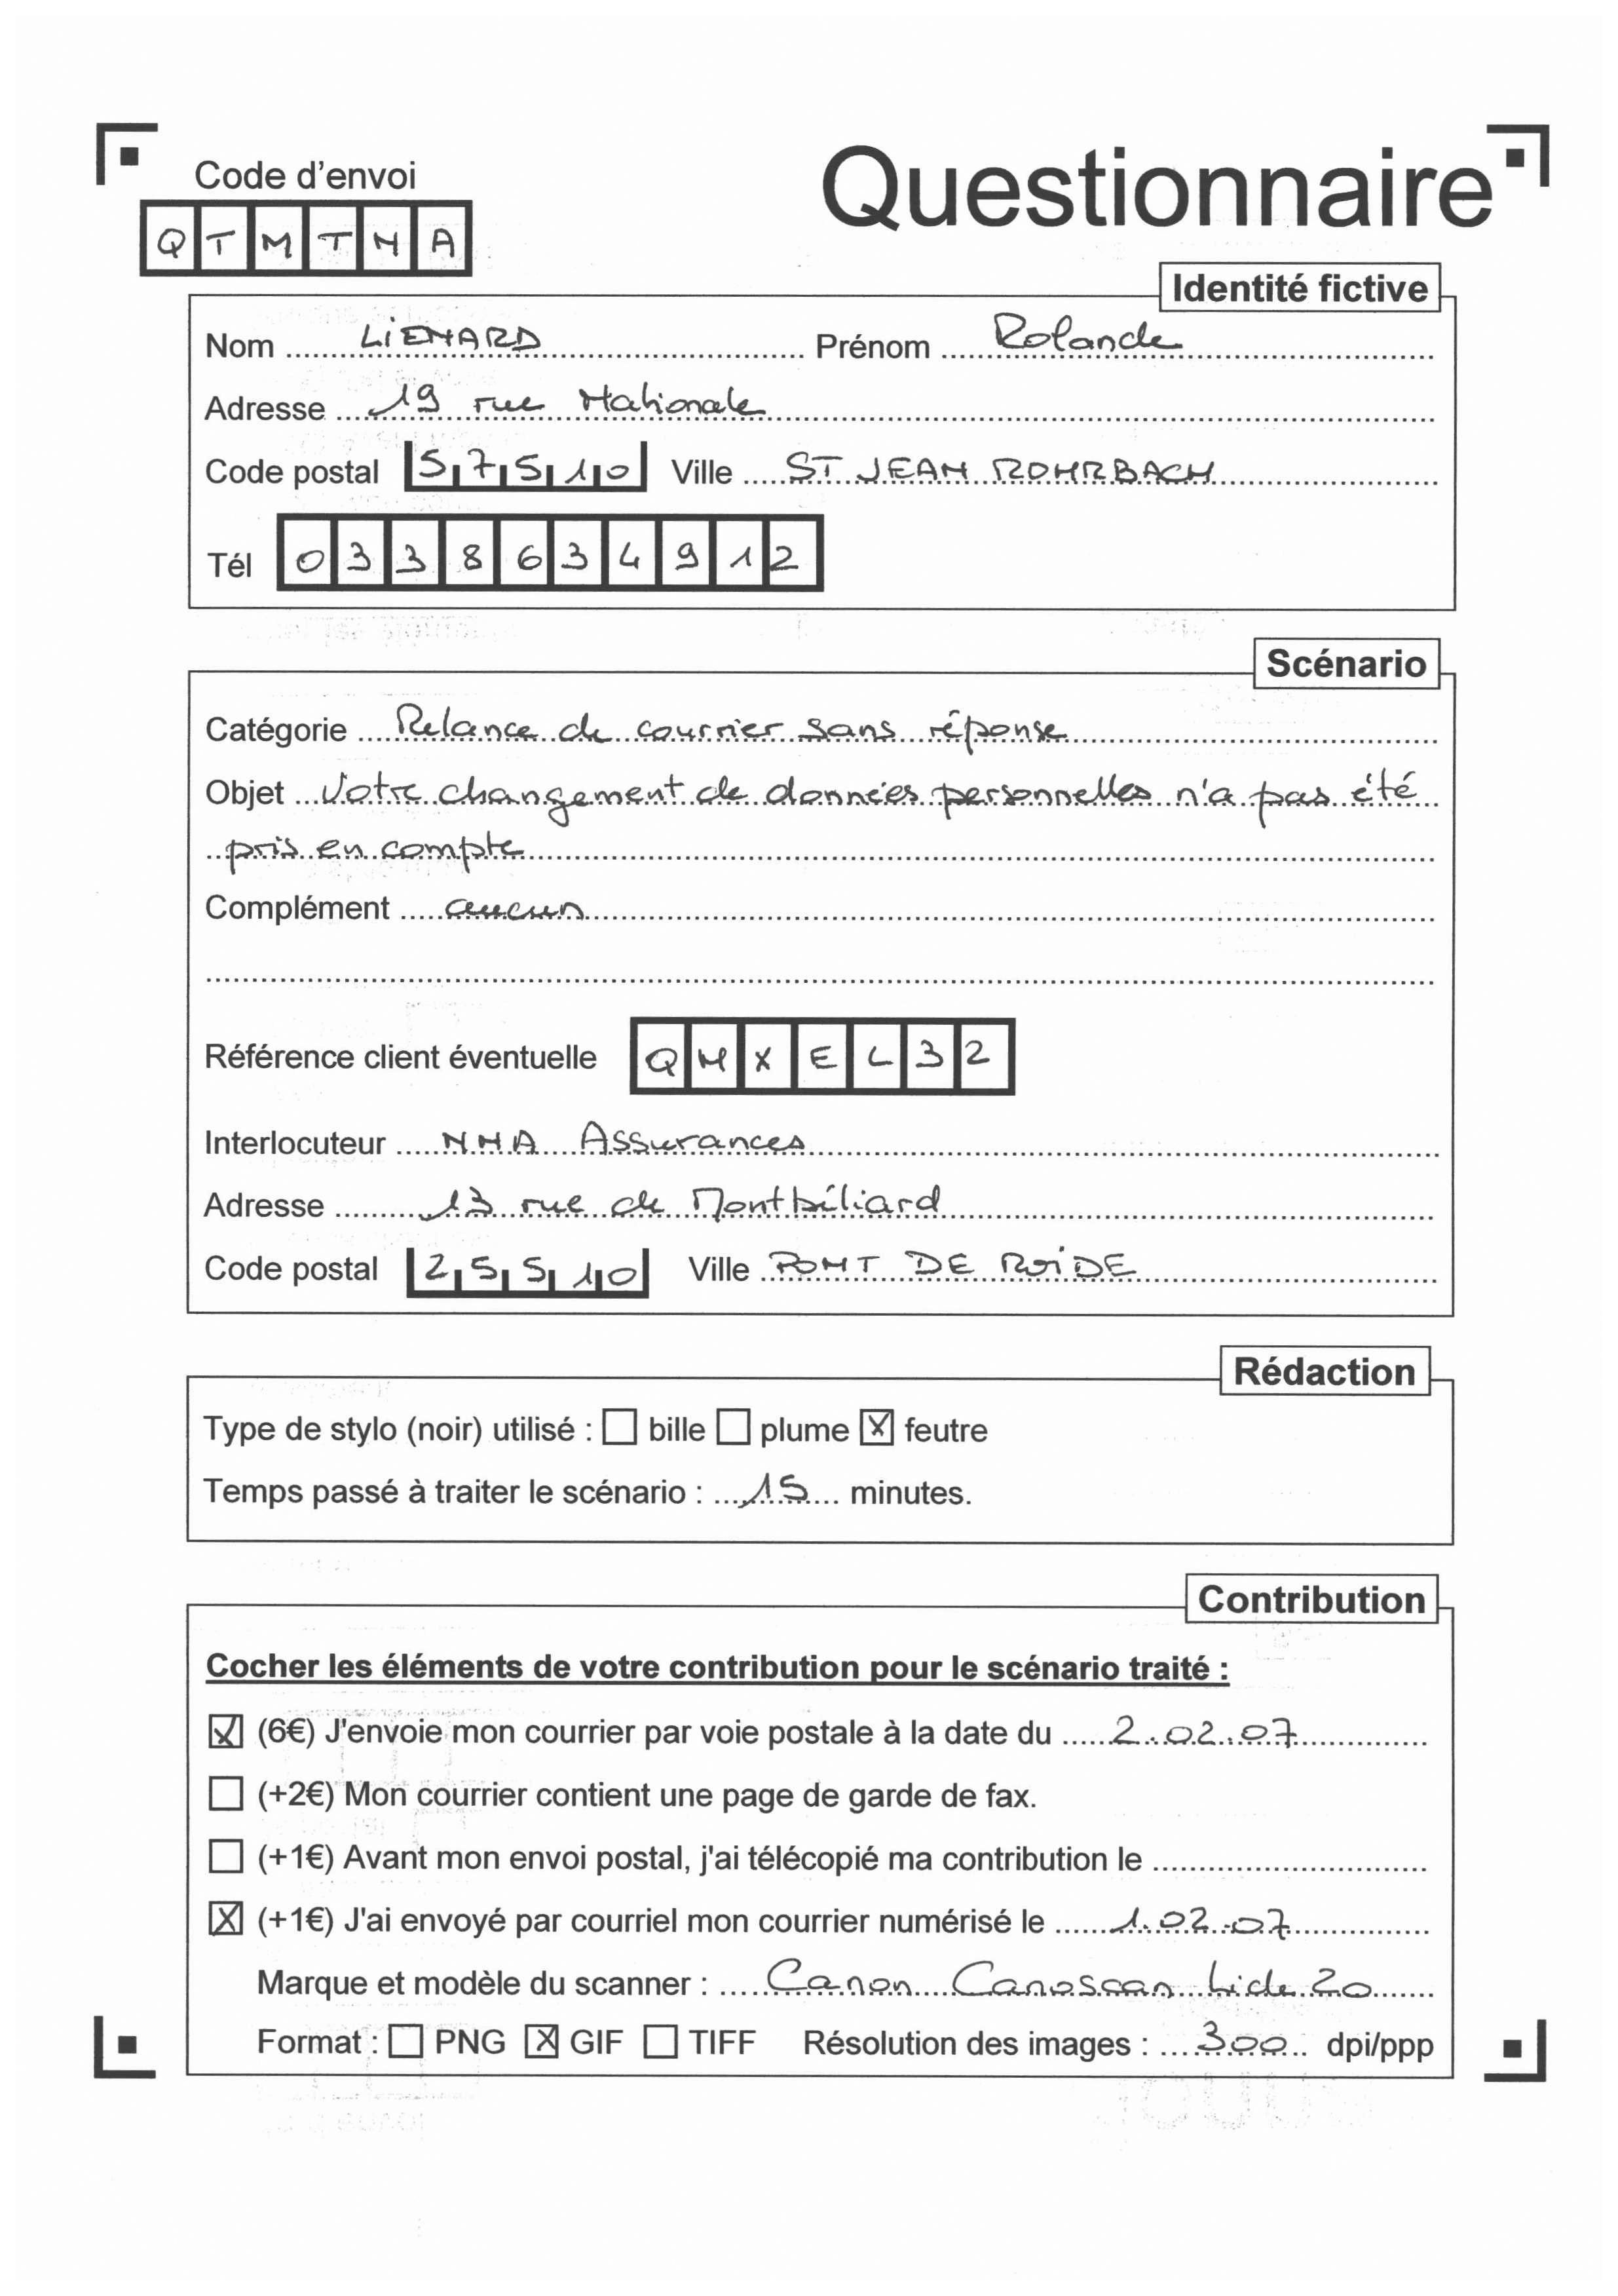 Code d'envoi
Questionnaire
QTMTNA
Identité fictive
Nom LiENARD Prénom Rolande
Adresse 19 rue Nationale
Code postal 57510 Ville ST JEAN ROHRBACH
Tél 0338634912
Scénario
Catégorie Relance de courrier sans réponse
Objet Votre changement de données personnelles n'a pas été
pris en compte
Complément aucun
Référence client éventuelle QNXEL32
Interlocuteur Assurances
Adresse 13 rue de Montbéliard
Code postal 25510 Ville PONT DE ROiDE
Rédaction
Type de stylo (noir) utilisé : bille plume X feutre
Temps passé à traiter le scénario : 15 minutes.
Contribution
Cocher les éléments de votre contribution pour le scénario traité :
X (6€) J'envoie mon courrier par voie postale à la date du 2.02.07
(+2€) Mon courrier contient une page de garde de fax.
(+1€) Avant mon envoi postal, j'ai télécopié ma contribution le
X (+1€) J'ai envoyé par courriel mon courrier numérisé le 1.02.07
Marque et modèle du scanner : Canon Canoscan Lide 20
Format : PNG X GIF TIFF Résolution des images : 300 dpi/ppp